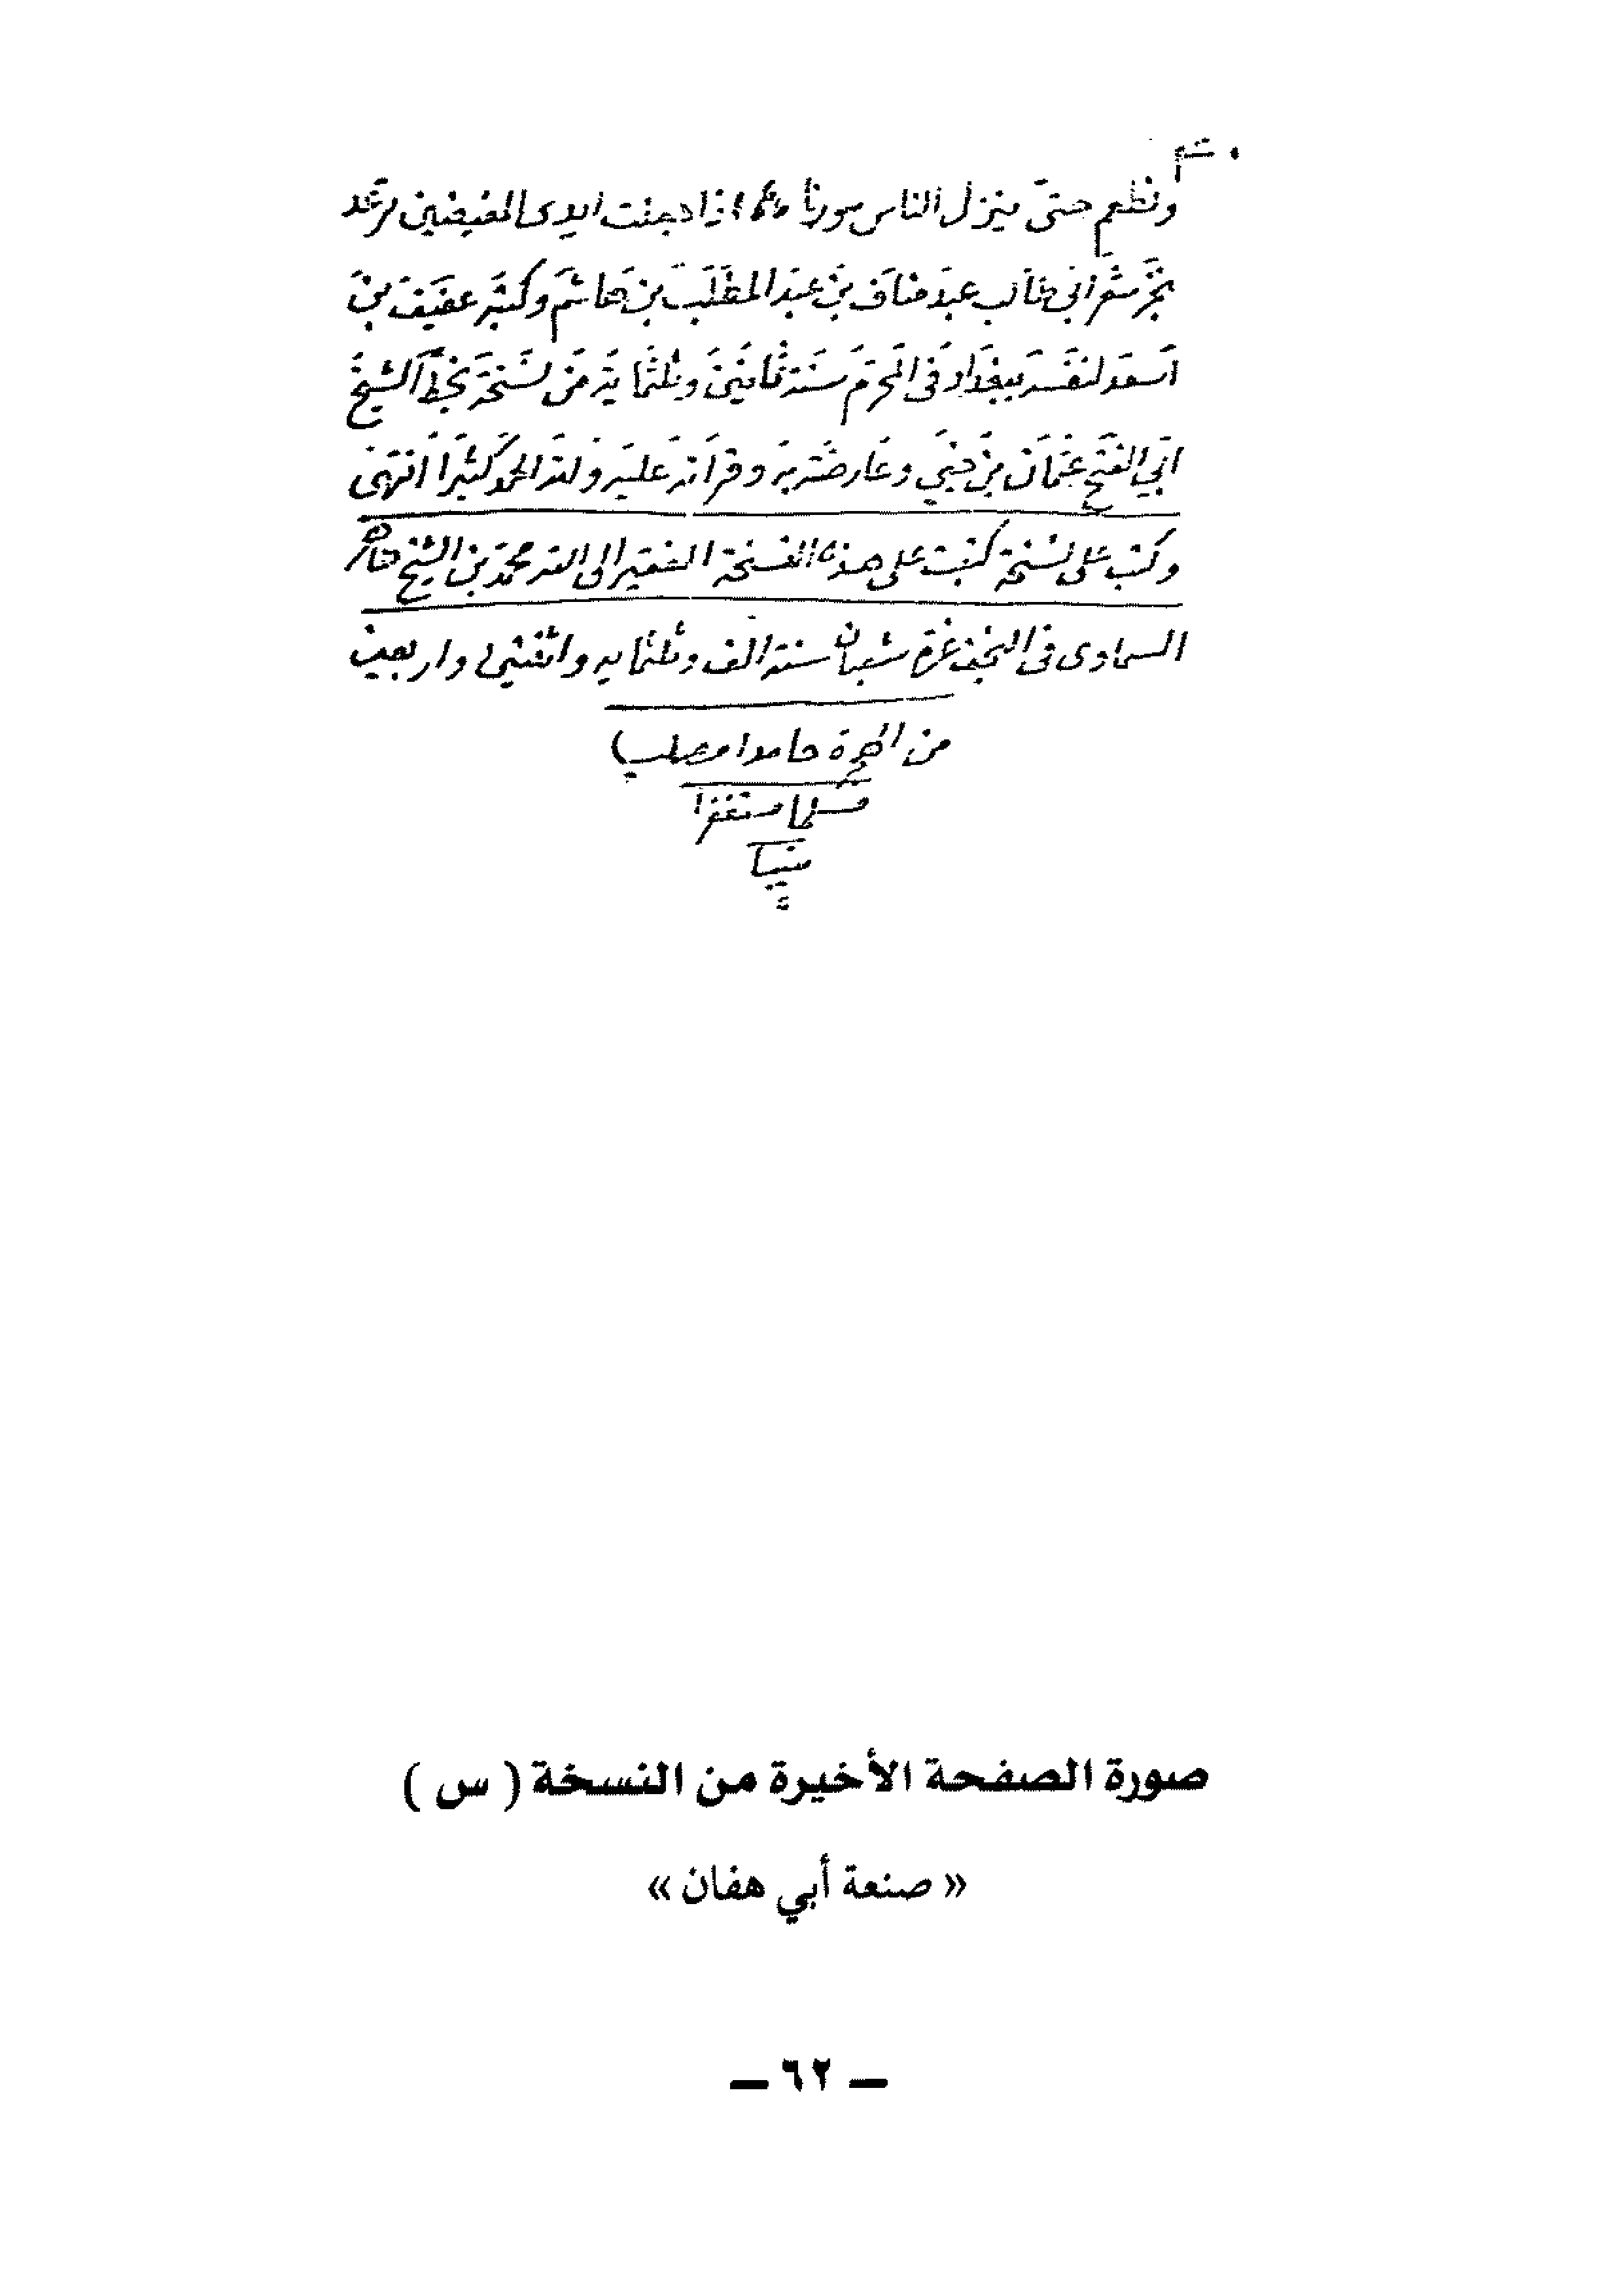 ونطعم حتى ينزل الناس سورنا اذا جعلت ايدى المفيضين ترعد
نجز شعر ابي طالب عبد مناف بن عبد المطلب بن هاشم وكتبه عفيف بن
اسعد لنفسه ببغداد فى المحرم سنة ثمانين وثلثماية من نسخة بخط الشيخ
ابي الفتح عثمان بن جني وعارضته به وقرأته عليه ولله الحمد كثيرا انتهى
وكتب على نسخة كتبت على هذه النسخة الفقير الى الله محمد بن الشيخ طاهر
السماوى فى النجف غرة شعبان سنة الف وثلثمايه واثنتين واربعين
من الهجرة حامدا مصليا
مسلما مستغفرا
منيبا
صورة الصفحة الأخيرة من النسخة ( س )
« صنعة أبي هفان »
ــ ٦٢ ــ